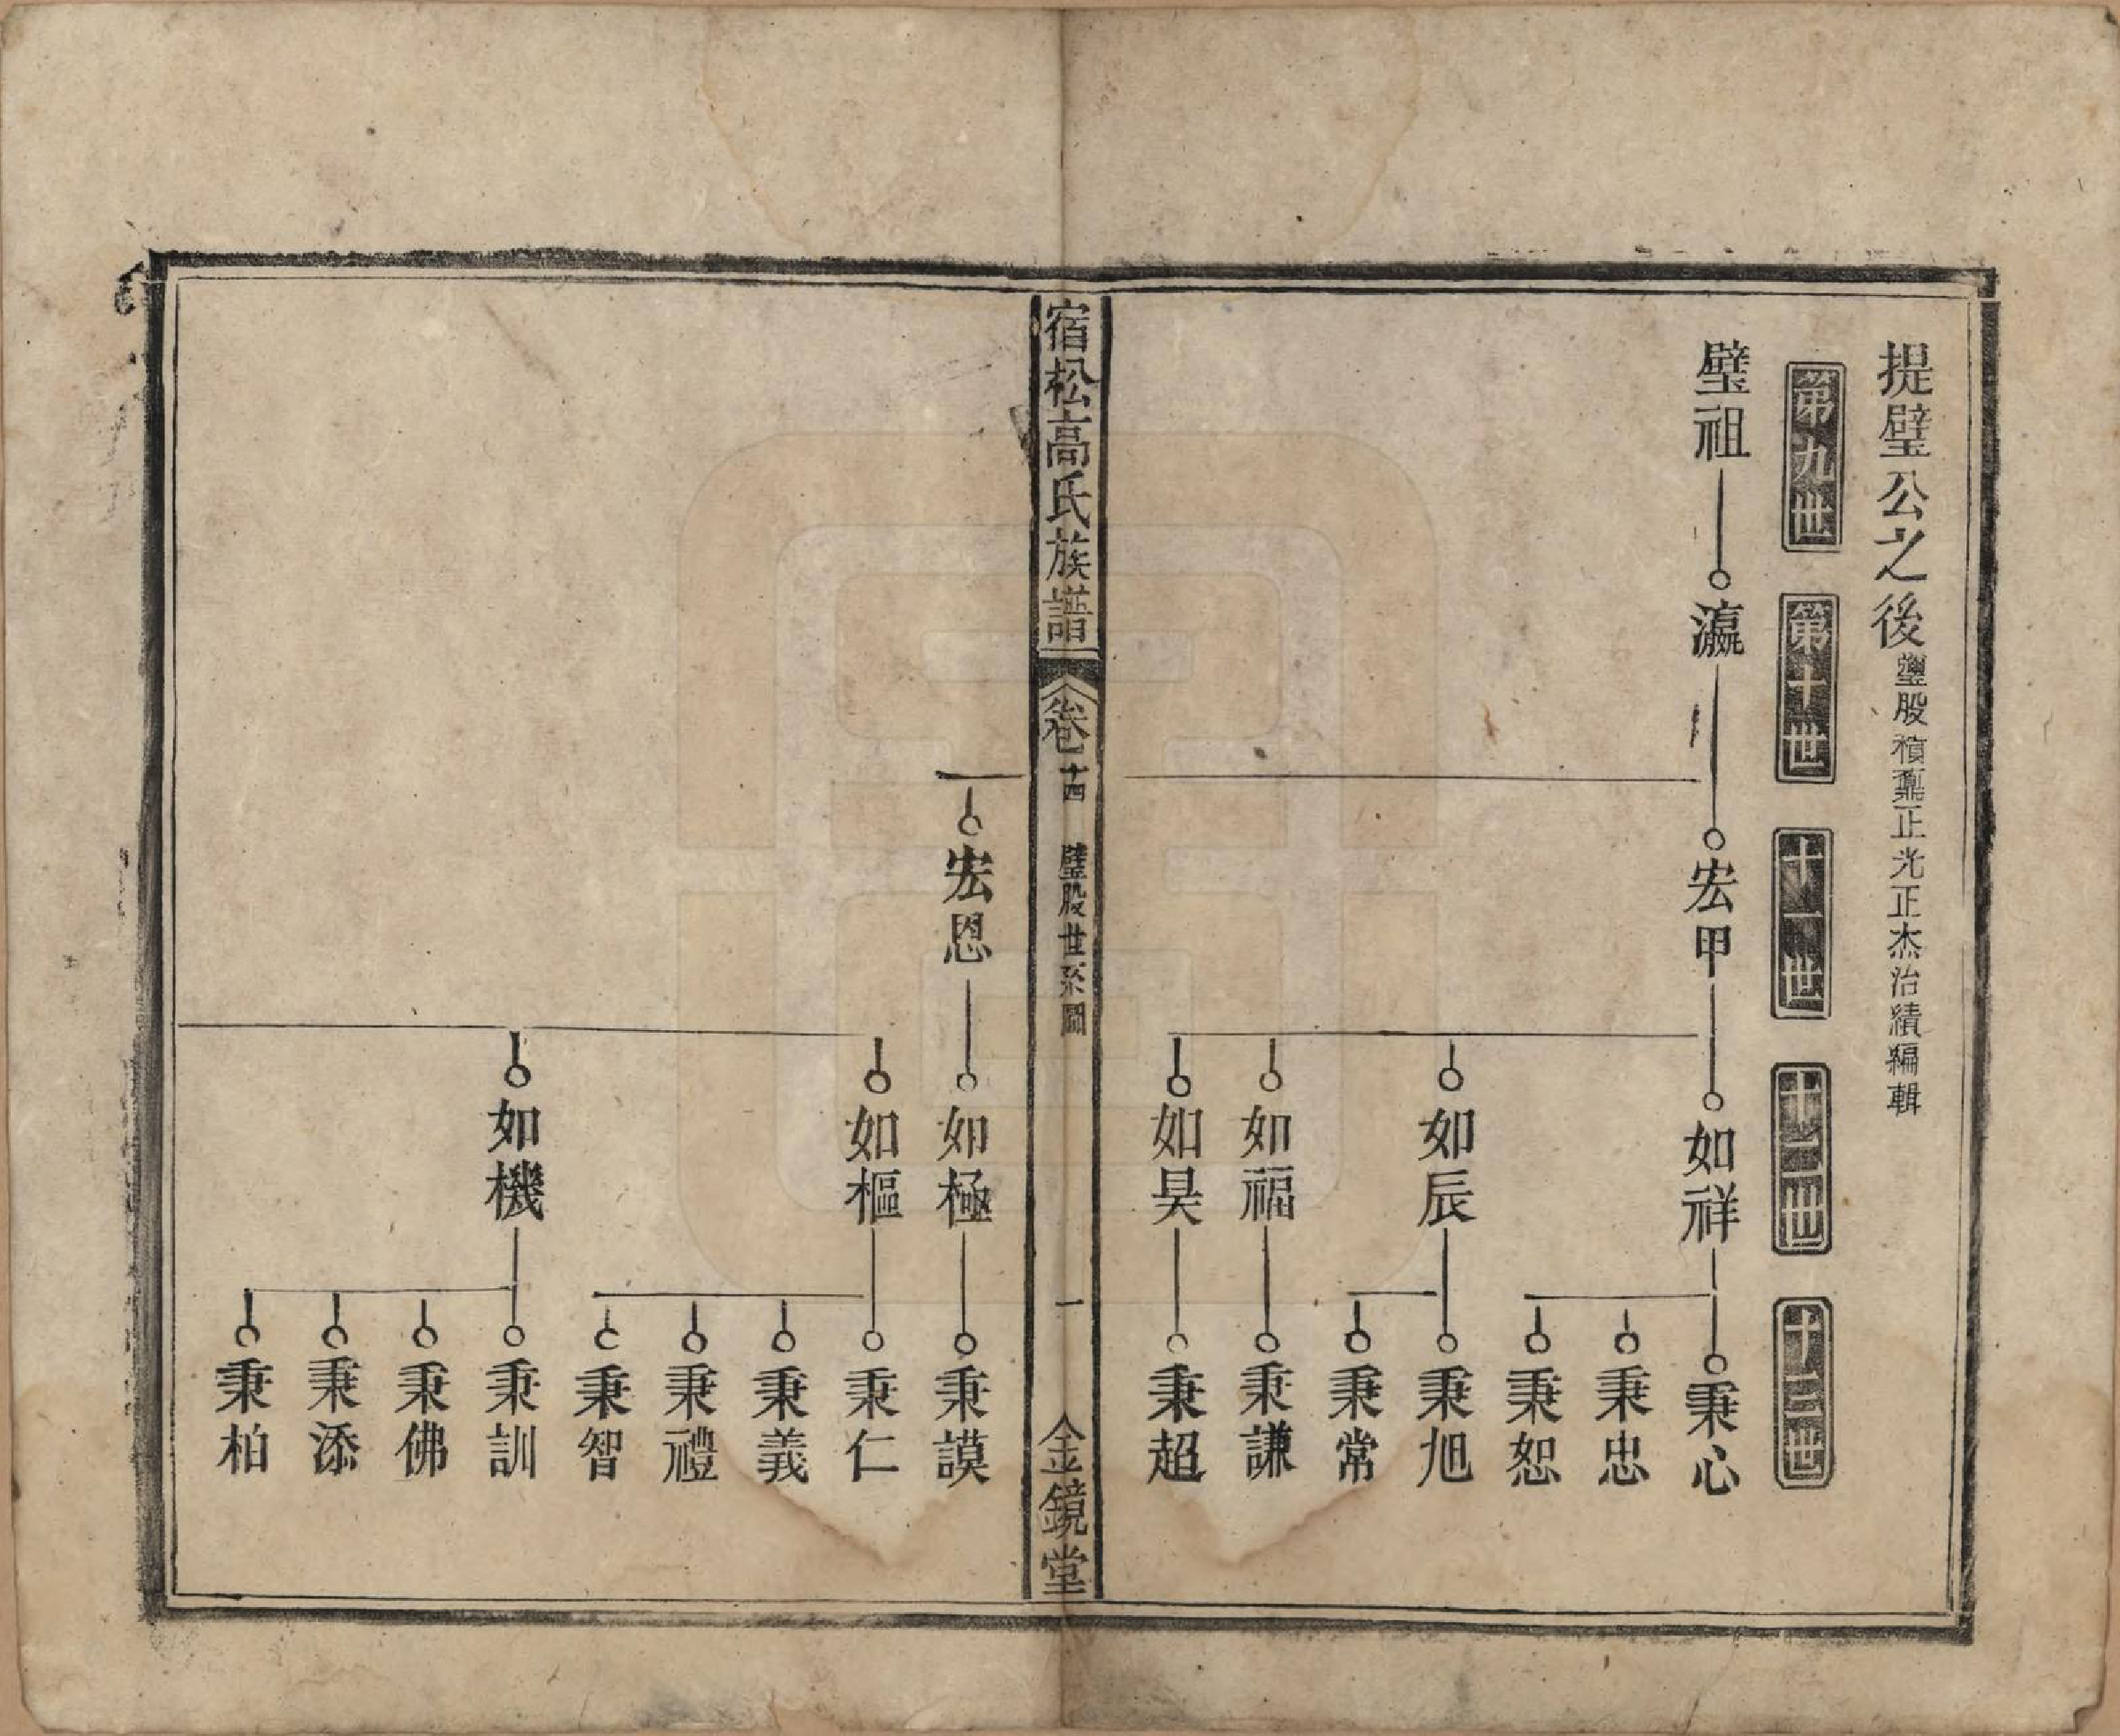 提璧公之後 璽股禎鼐正光正杰治績編輯
第九世
第十世
十一世
十二世
十三世
璧祖
瀛
宏甲
如祥
秉心
秉忠
秉恕
如辰
秉旭
秉常
如福
秉謙
如昊
秉超
宿松高氏族譜
卷十四
璧股世系圖
一
金鏡堂
宏恩
如極
秉謨
如樞
秉仁
秉義
秉禮
秉智
如機
秉訓
秉佛
秉添
秉柏